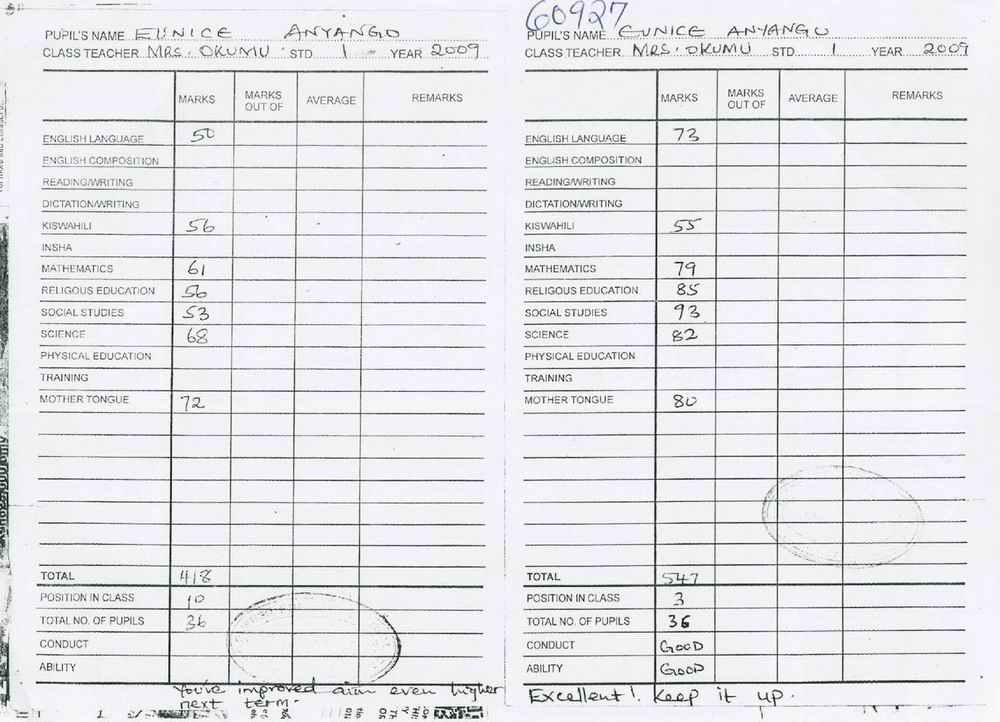 PUPIL'S NAME EUNICE ANYANGO
CLASS TEACHER MRS. OKUMU STD. 1 YEAR 2009
MARKS MARKS OUT OF AVERAGE REMARKS
ENGLISH LANGUAGE 50
ENGLISH COMPOSITION
READING/WRITING
DICTATION/WRITING
KISWAHILI 56
INSHA
MATHEMATICS 61
RELIGOUS EDUCATION 56
SOCIAL STUDIES 53
SCIENCE 68
PHYSICAL EDUCATION
TRAINING
MOTHER TONGUE 72
TOTAL 418
POSITION IN CLASS 10
TOTAL NO. OF PUPILS 36
CONDUCT
ABILITY
You've improved aim even higher
next term.
60927
PUPIL'S NAME EUNICE ANYANGO
CLASS TEACHER MRS. OKUMU STD. 1 YEAR 2009
MARKS MARKS OUT OF AVERAGE REMARKS
ENGLISH LANGUAGE 73
ENGLISH COMPOSITION
READING/WRITING
DICTATION/WRITING
KISWAHILI 55
INSHA
MATHEMATICS 79
RELIGOUS EDUCATION 85
SOCIAL STUDIES 93
SCIENCE 82
PHYSICAL EDUCATION
TRAINING
MOTHER TONGUE 80
TOTAL 547
POSITION IN CLASS 3
TOTAL NO. OF PUPILS 36
CONDUCT GOOD
ABILITY GOOD
Excellent! Keep it up.